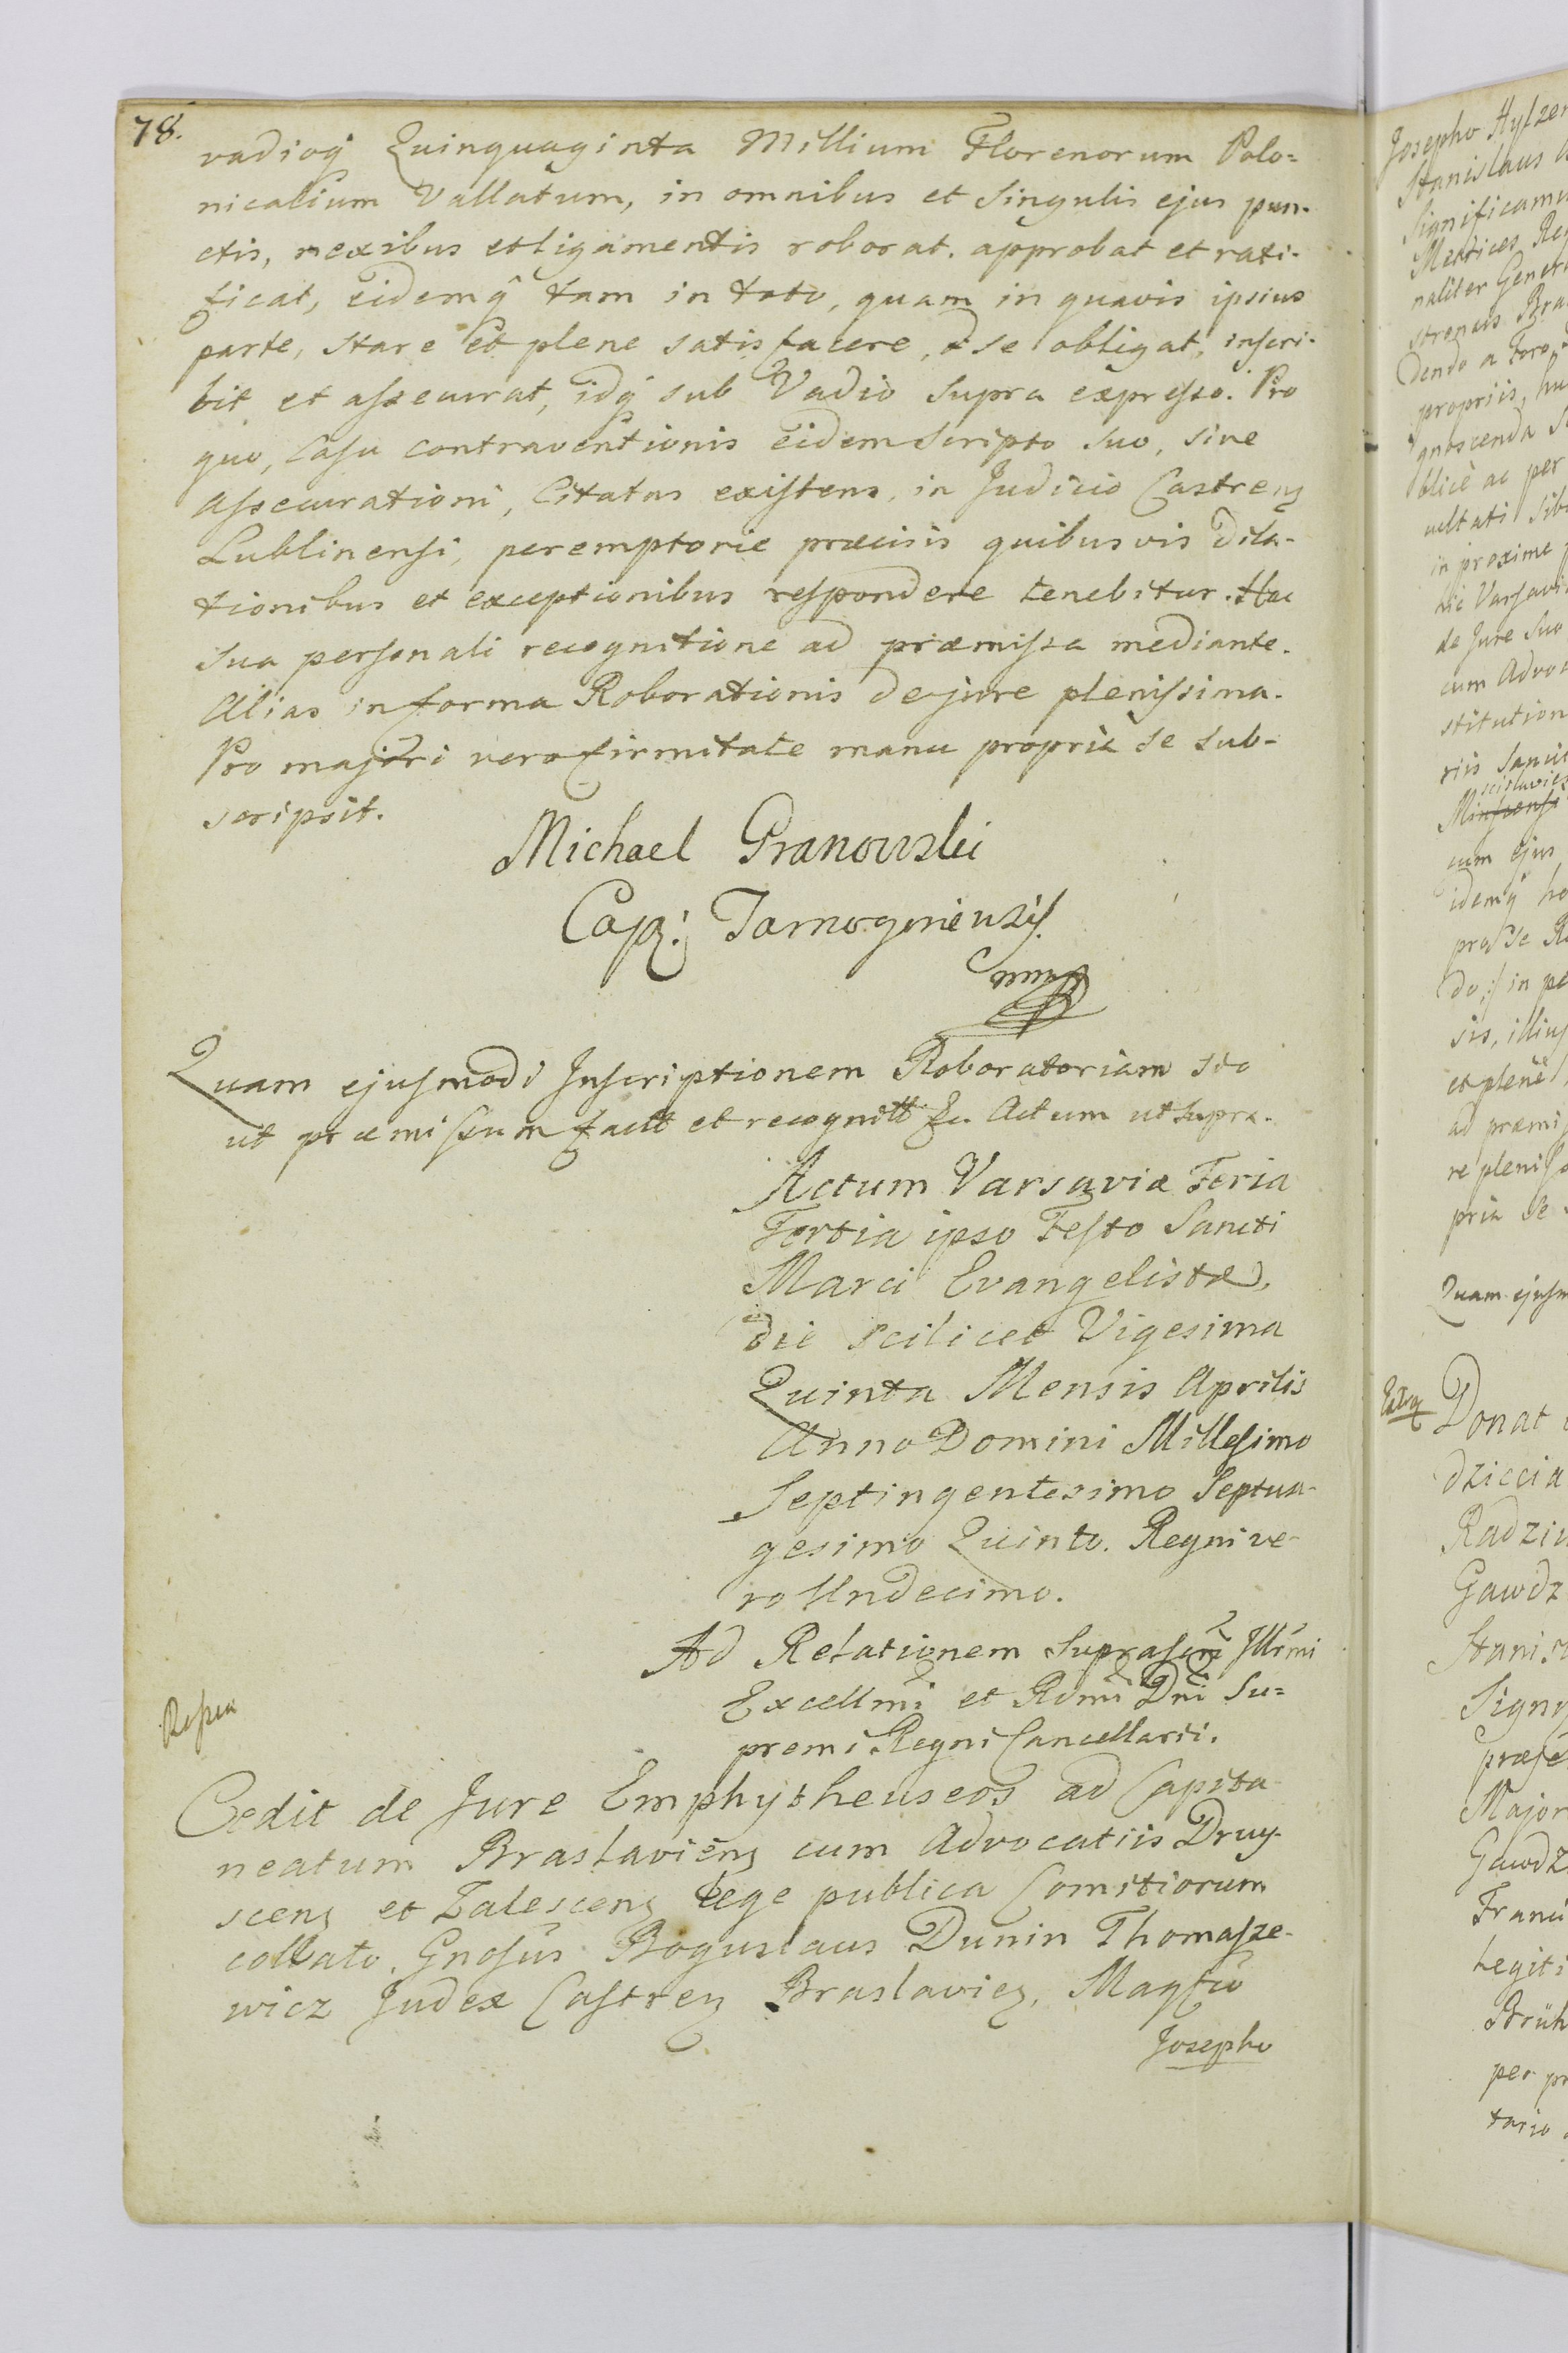 78.
vadioq̃ Quinquaginta Millium Florenorum Polo=
nicalium Vallatum, in omnibus et Singulis ejus pun-
ctis, nexibus et ligamentis roborat, approbat et rati-
ficat, eidemq̃ tam in toto, quam in quavis ipsius
parte, stare et plene satisfacere, se obligat, inscri-
bit et assecurat, idq̃ sub Vadio Supra expresso. Pro
quo, Casu contraventionis eidem Scripto Suo, sive
Assecurationi, Citatus existens, in Judicio Castrens
Lublinensi, peremptorie præcisis quibusvis dila-
tionibus et exceptionibus respondere tenebitur. Hac
Sua personali recognitione ad præmissa mediante.
Alias in forma Roborationis de jure plenissima.
Pro majori vero firmitate manu propria se sub-
scripsit.
Michael Granowski
Cap: Tarnogoriensis
mmp
Quam ejusmodi Inscriptionem Roboratoriam sic
ut præmissum factt et recognitt Eu Actum ut supra.
Actum Varsaviæ Feria
Tertia ipso Festo Sancti
Marci Evangelistæ,
die scilicet Vigesima
Quinta Mensis Aprilis
Anno Domini Millesimo
Septingentesimo Septua-
gesimo Quinto. Regni ve-
ro Undecimo.
Ad Relationem Suprascri Illrmi
Excellmi et Rdmi Dni Su=
premi Regni Cancellarii.
Cedit de Jure Emphytheuseos ad Capita-
neatum Braslaviens cum Advocatiis Druy-
scens et Zalescens lege publica Comitiorum
collato. Gnosus Boguslaus Dunin Thomasze-
wicz Judex Castrens Braslavien, Magfco
Josepho
Josepho Hylzen
Stanislaus
Significamu
Metrices Reg
naliter Gener
strensis Bra
dendo a Foro
propriis, hu
gnoscenda
blicè ac per
ultati sib
in proxime
de Jure Suo
cum Advoc
stitution
riis Sancit
cum ejus
idemq̃ ho
pro se R
do, in pe
sis, illius
et plenè
ad præmi
re plenis
pria se
Quam ejusm
Donat
dziccia
Radziw
Gawdz
Stanis
Signu
præfe
Major
Gawdz
Franci
legiti
Brüh
per pr
tario